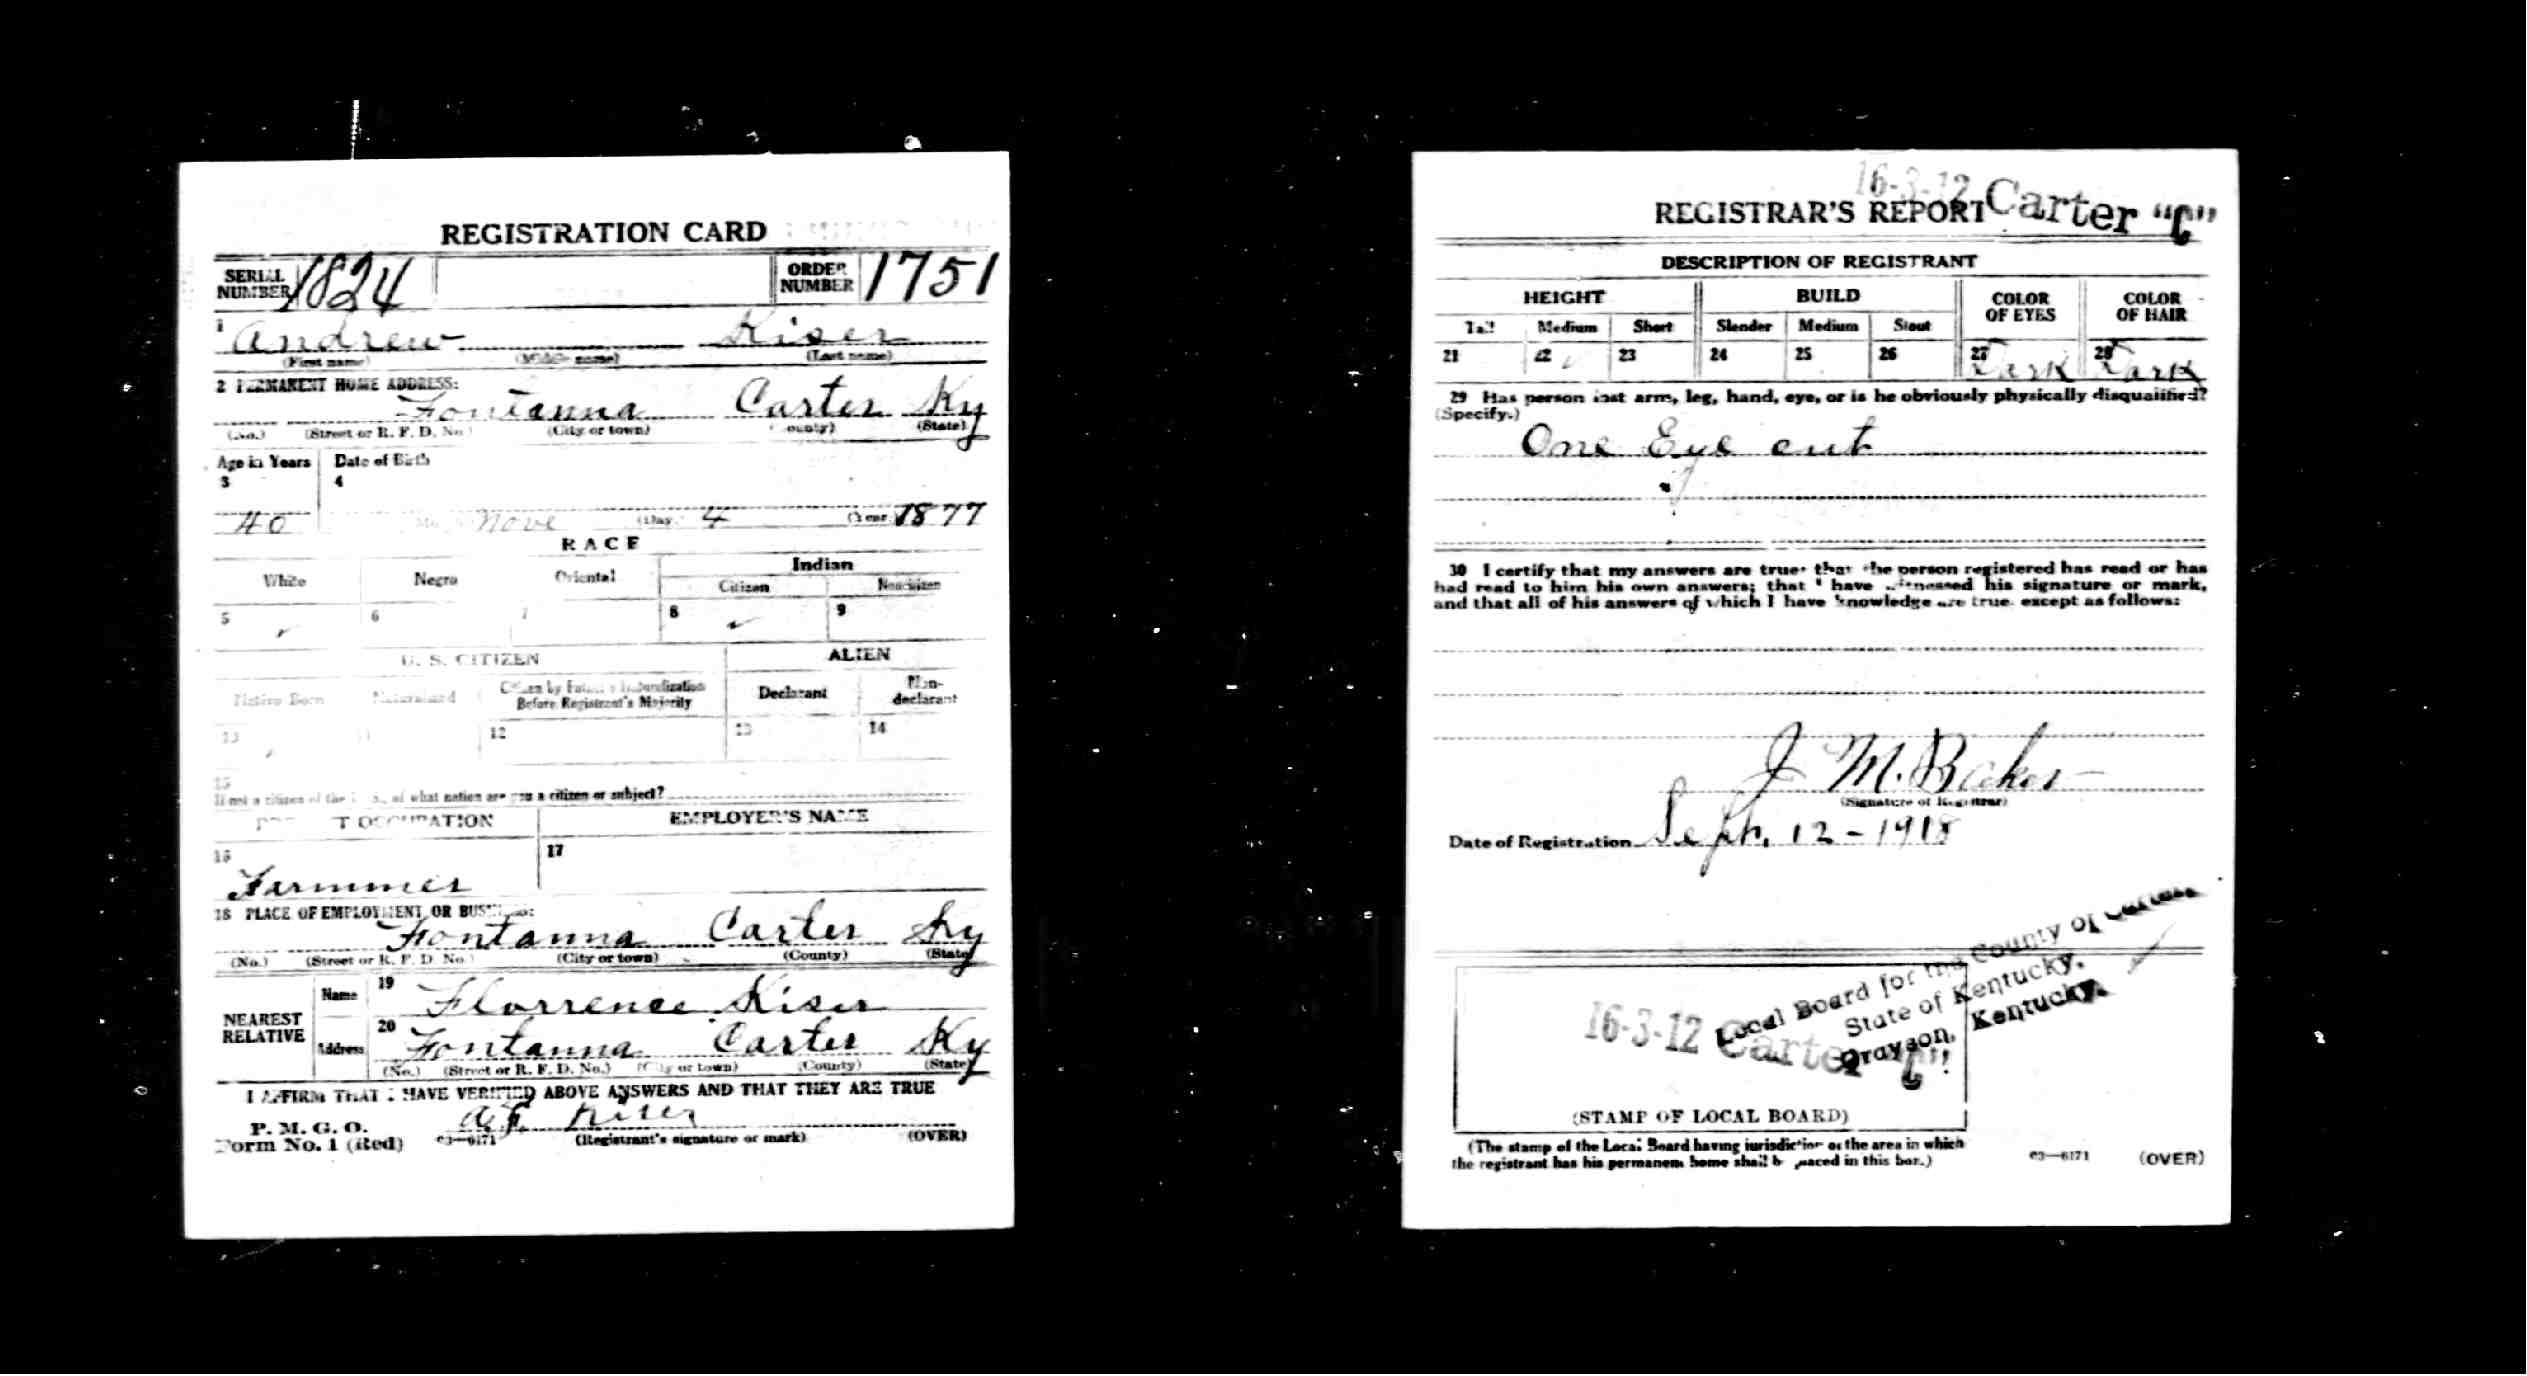 REGISTRATION CARD
SERIAL NUMBER 1824 ORDER NUMBER 1751
1 Andrew Kiser
(First name) (Middle name) (Last name)
2 PERMANENT HOME ADDRESS:
Fontanna Carter Ky
(No.) (Street or R. F. D. No.) (City or town) (County) (State)
Age in Years Date of Birth
3 4
40 Nove (Day) 4 (Year) 1877
RACE
White Negro Oriental Indian
Citizen Noncitizen
5 ✓ 6 7 8 ✓ 9
U. S. CITIZEN ALIEN
Native Born Naturalized Citizen by Father's Naturalization Before Registrant's Majority Declarant Non-declarant
10 ✓ 11 12 13 14
15
If not a citizen of the U. S., of what nation are you a citizen or subject?
PRESENT OCCUPATION EMPLOYER'S NAME
16 17
Farmmer
18 PLACE OF EMPLOYMENT OR BUSINESS:
Fontanna Carter Ky
(No.) (Street or R. F. D. No.) (City or town) (County) (State)
NEAREST RELATIVE Name 19 Florrence Kiser
Address 20 Fontanna Carter Ky
(No.) (Street or R. F. D. No.) (City or town) (County) (State)
I AFFIRM THAT I HAVE VERIFIED ABOVE ANSWERS AND THAT THEY ARE TRUE
P. M. G. O.
Form No. 1 (Red) 03—6171 Kiser (Registrant's signature or mark) (OVER)
16-3-12 Carter "C"
REGISTRAR'S REPORT
DESCRIPTION OF REGISTRANT
HEIGHT BUILD COLOR OF EYES COLOR OF HAIR
Tall Medium Short Slender Medium Stout
21 22 ✓ 23 24 25 26 27 Dark 28 Dark
29 Has person lost arm, leg, hand, eye, or is he obviously physically disqualified?
(Specify.)
One Eye out
30 I certify that my answers are true; that the person registered has read or has
had read to him his own answers; that I have witnessed his signature or mark,
and that all of his answers of which I have knowledge are true, except as follows:
J M. Baker
(Signature of Registrar)
Date of Registration Seph. 12-1918
Local Board for the County of Carter
State of Kentucky.
Grayson, Kentucky.
16-3-12 Carter "C"
(STAMP OF LOCAL BOARD)
(The stamp of the Local Board having jurisdiction of the area in which
the registrant has his permanent home shall be placed in this box.)
03—6171 (OVER)